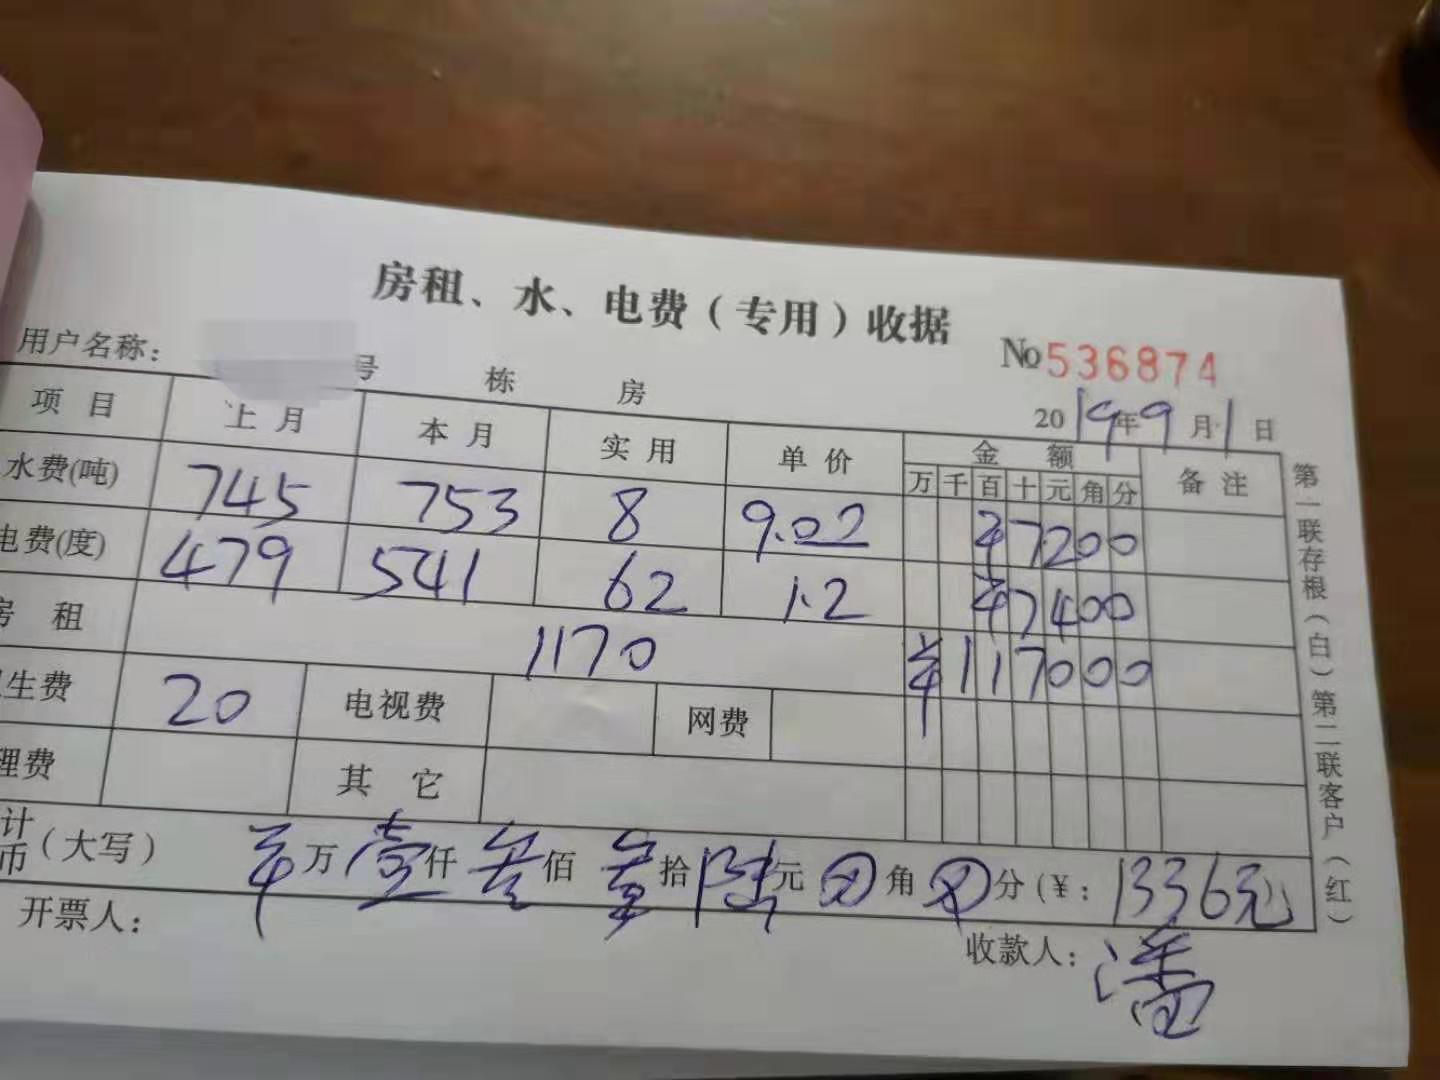 房租、水、电费（专用）收据
No 536874
用户名称： 号 栋 房
2019年9月1日
项目 上月 本月 实用 单价 金额 备注
万 千 百 十 元 角 分
水费(吨) 745 753 8 9.02 ¥7200
电费(度) 479 541 62 1.2 ¥7400
房租 1170 ¥117000
生费 20 电视费 网费
理费 其它
计
币（大写） 万壹仟叁佰叁拾陆元 角 分(¥: 1336元
开票人： 收款人：潘
第一联存根（白）第二联客户（红）